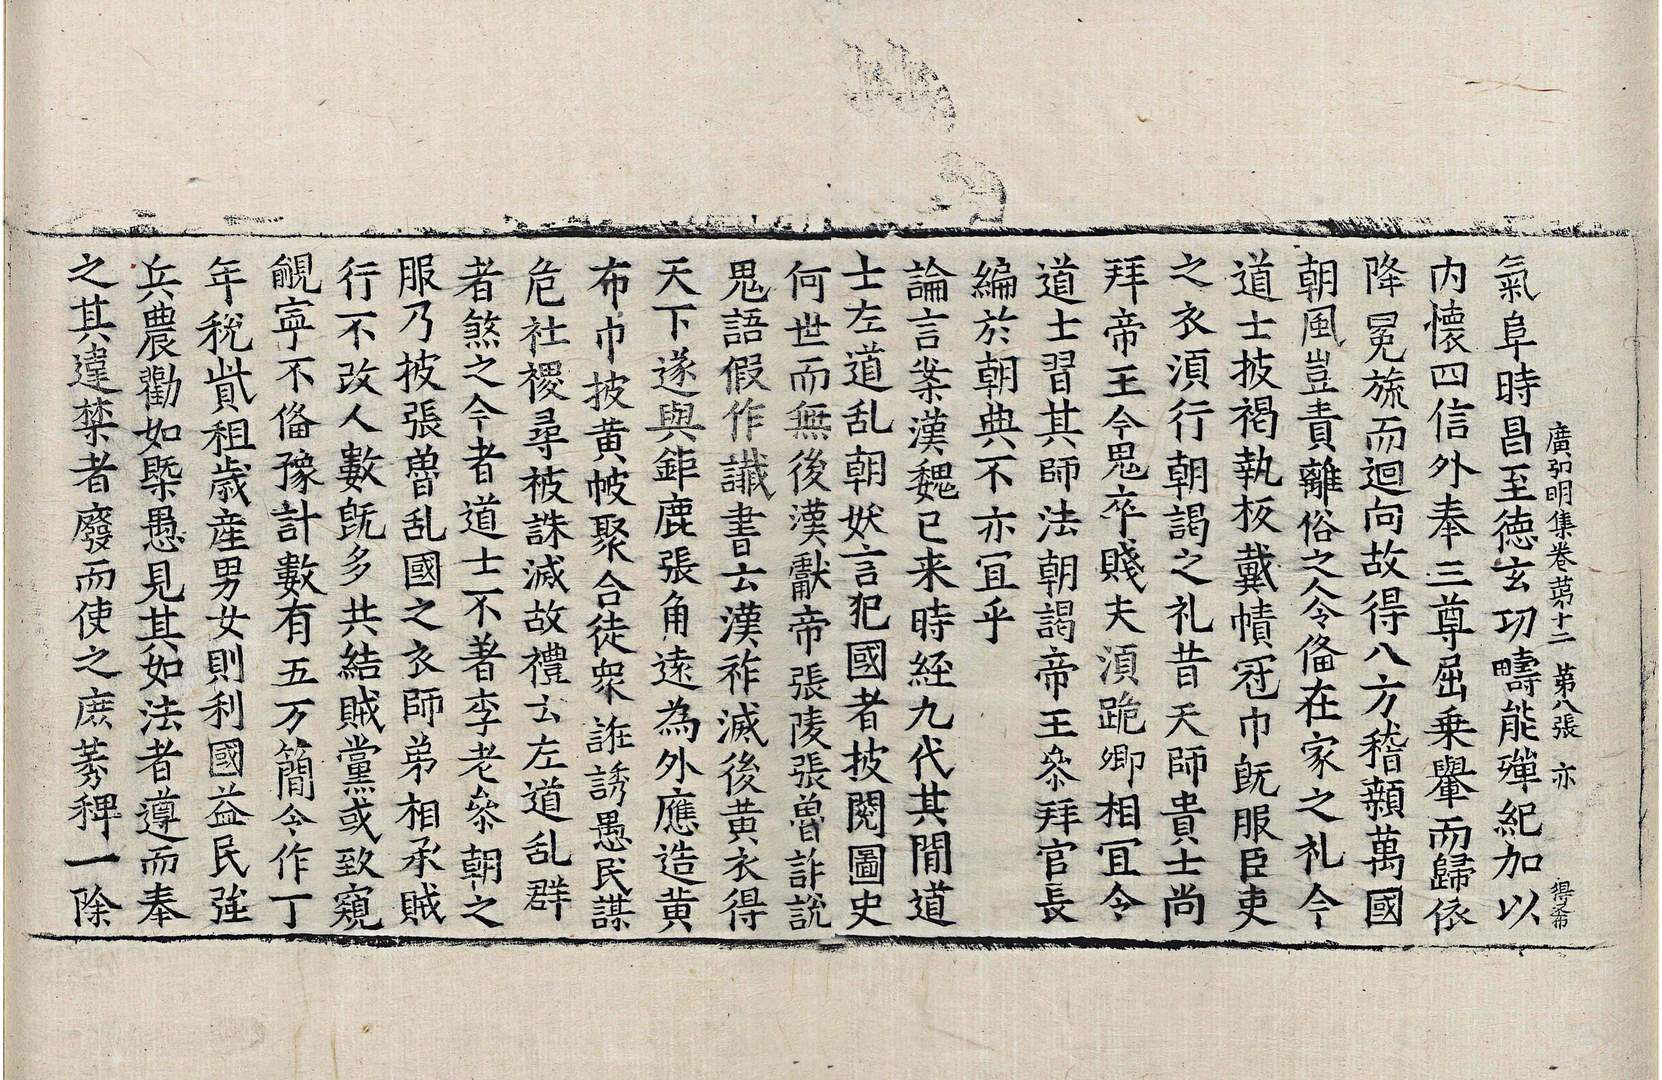 廣弘明集卷第十二　第八張　亦
氣阜時昌至德玄功疇能殫紀加以
内懷四信外奉三尊屈乗轝而歸依
降冕旒而迴向故得八方稽顙萬國
朝風豈責離俗之人令俻在家之礼今
道士披褐執板戴幘冠巾旣服臣吏
之衣湏行朝謁之礼昔天師貴士尚
拜帝王今鬼卒賤夫湏跪卿相冝令
道士習其師法朝謁帝王叅拜官長
編於朝典不亦冝乎
論言案漢魏已来時経九代其間道
士左道乱朝妖言犯國者披閱圖史
何世而無後漢獻帝張陵張魯詐說
鬼語假作讖書云漢祚滅後黄衣得
天下遂與鉅鹿張角遠為外應造黄
布巾披黄帔聚合徒衆誑誘愚民謀
危社稷尋被誅滅故禮云左道乱群
者煞之今者道士不著李老叅朝之
服乃披張魯乱國之衣師弟相承賊
行不改人數旣多共結賊黨或致窺
覦寧不俻豫計數有五万簡令作丁
年稅貲租歲産男女則利國益民強
兵農勸如槩愚見其如法者遵而奉
之其違禁者廢而使之庶莠稗一除